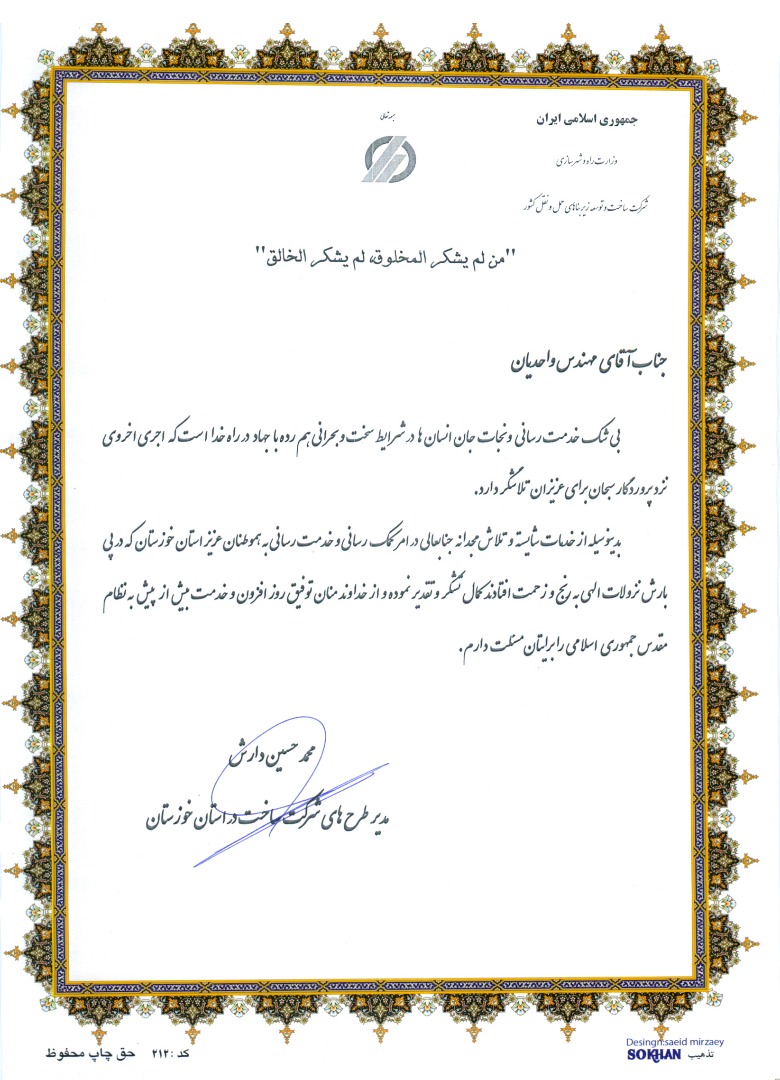 بسمه تعالی
جمهوری اسلامی ایران
وزارت راه و شهرسازی
شرکت ساخت و توسعه زیربناهای حمل و نقل کشور
"من لم یشکر المخلوق، لم یشکر الخالق"
جناب آقای مهندس واحدیان
بی شک خدمت رسانی و نجات جان انسان ها در شرایط سخت و بحرانی هم رده با جهاد در راه خدا است که اجری اخروی
نزد پروردگار سبحان برای عزیزان تلاشگر دارد.
بدینوسیله از خدمات شایسته و تلاش مجدانه جنابعالی در امر کمک رسانی و خدمت رسانی به هموطنان عزیز استان خوزستان که در پی
بارش نزولات الهی به رنج و زحمت افتادند کمال تشکر و تقدیر نموده و از خداوند منان توفیق روز افزون و خدمت بیش از پیش به نظام
مقدس جمهوری اسلامی را برایتان مسئلت دارم.
محمد حسین دارش
مدیر طرح های شرکت ساخت در استان خوزستان
Desingn:saeid mirzaey
تذهیب SOKHAN
کد : ۲۱۲ حق چاپ محفوظ